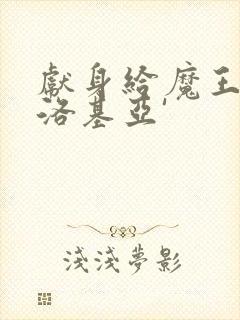 獻身給魔王
洛基亞'
淺淺夢影